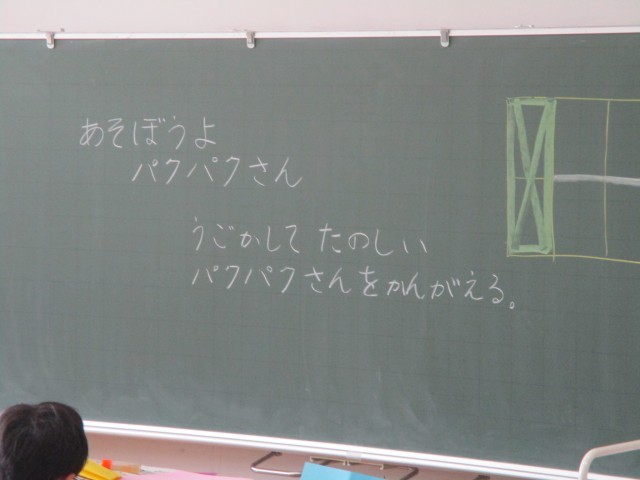 あそぼうよ
パクパクさん
うごかして たのしい
パクパクさんをかんがえる。